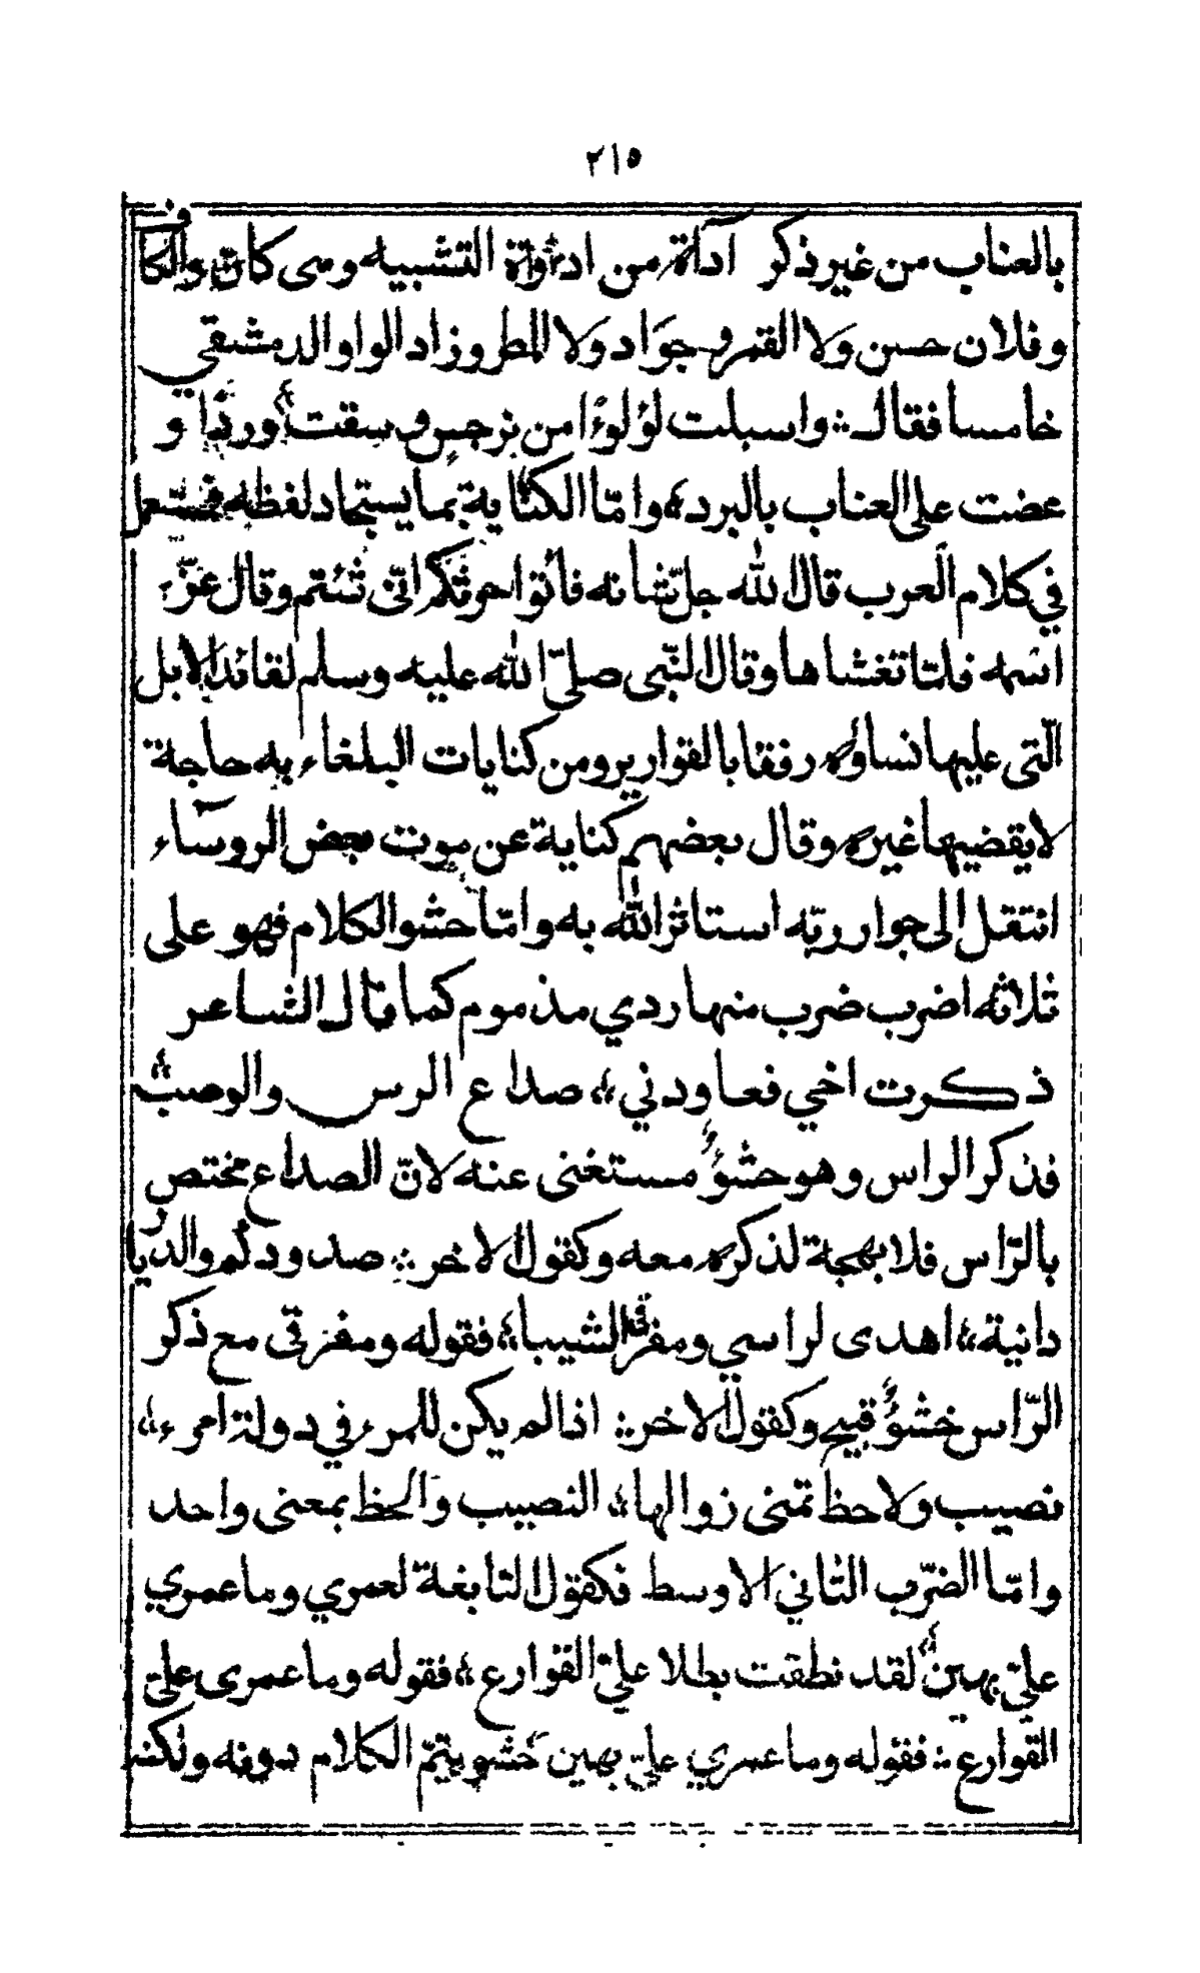 ٢١٥
بالعناب من غير ذكر آداة من ادواة التشبيه ومى كان والكا
وفلان حسن ولا القمر وجواد ولا المطر وزاد الواوا الدمشقي
خامسا فقال ∴ واسبلت لؤلؤا من نرجس وسقت وردا و
عضت على العناب بالبرد ؞ وامّا الكناية بما يستجاد لفظه فستعمل
في كلام العرب قال الله جلّ شانه فأتوا حرثكم انّى شئتم وقال عزّ
اسمه فلمّا تغشاها وقال النّبى صلىّ الله عليه وسلم لقائد الابل
الّتى عليها نساؤه رفقا بالقوارير ومن كنايات البلغاء به حاجة
لا يقضيها غيره وقال بعضهم كناية عن موت بعض الروساء
انتقل الى جوار ربّه استاثر الله به وامّا حشو الكلام فهو على
ثلاثه اضرب ضرب منها ردي مذموم كما قال الشاعر
ذكرت اخي فعاودني ؞ صداع الرس والوصب
فذكر الراس وهو حشوٌ مستغنى عنه لانّ الصداع مختص
بالرّاس فلا بهجة لذكره معه وكقول الاخر ∴ صدودكم والديا
دانية ؞ اهدى لراسي ومفرقى الشيبا ؞ فقوله ومفرقى مع ذكر
الرّاس خشوٌ قبيح وكقول الاخر ∴ اذا لم يكن للمرء في دولة امرء ؞
نصيب ولا حظ تمنى زوالها ؞ النصيب والحظ بمعنى واحد
وامّا الضّرب الثاني الاوسط فكقول النابغة لعمري وما عمري
عليّ بهين ؞ لقد نطقت بطلا عليّ القوارع ؞ فقوله وما عمرى علىّ
القوارع ∴ فقوله وما عمري عليّ بهين خشو يتمّ الكلام دونه ولكنه